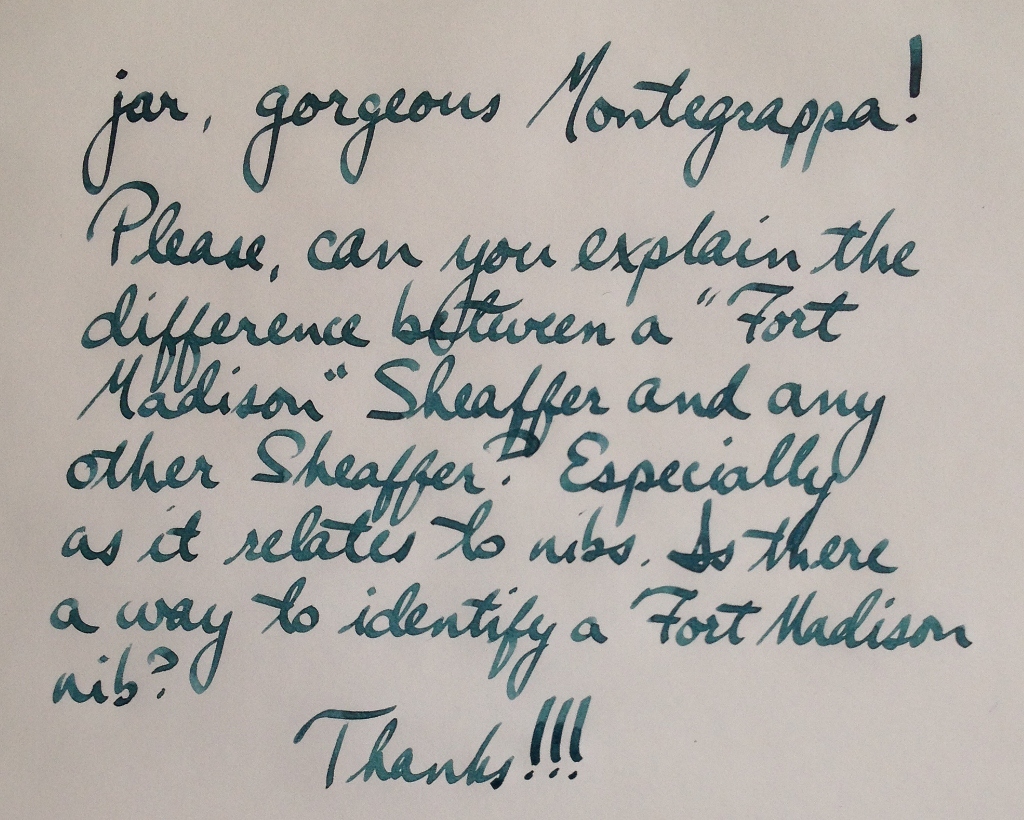 jar, gorgeous Montegrappa!
Please, can you explain the
difference between a "Fort
Madison" Sheaffer and any
other Sheaffer? Especially
as it relates to nibs. Is there
a way to identify a Fort Madison
nib?
Thanks!!!